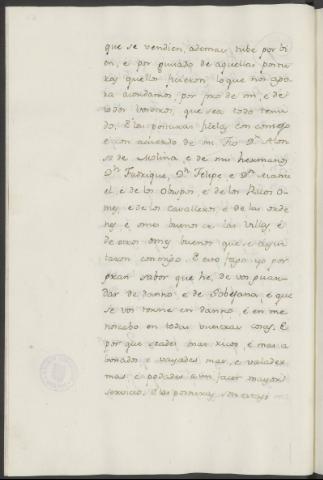 que se vendien, ademas, tube por bi
en, e por quitado de aquellas postu
ras que ellos ficieron, lo que nos aga
ra acordamos, por pro de mi, e de
todos vosotros, que sea todo tenu
do. E las posturas fielas con consejo
e con acuerdo de mi Tio Dn Alon
so de Molina, e de mis hermanos
Dn Fadrique, Dn Felipe e Dn Manu
el, é de los Obispos, é de los Ricos O
mes, é de los Cavalleros, é de las orde
nes, é omes buenos de las villas, é
de otros omes buenos que se ayun
taron conmigo. E esto fago yo por
gran sabor que he, de vos guar
dar de danno, é de sobejana, é que
se vos torne en danno, é en me
noscabo en todas vuestras cosas. E
por que seades mas ricos, é mas a
bonados, e vayades mas, e valades
mas, e podades a mi facer mayor
servicio. E las posturas son estas